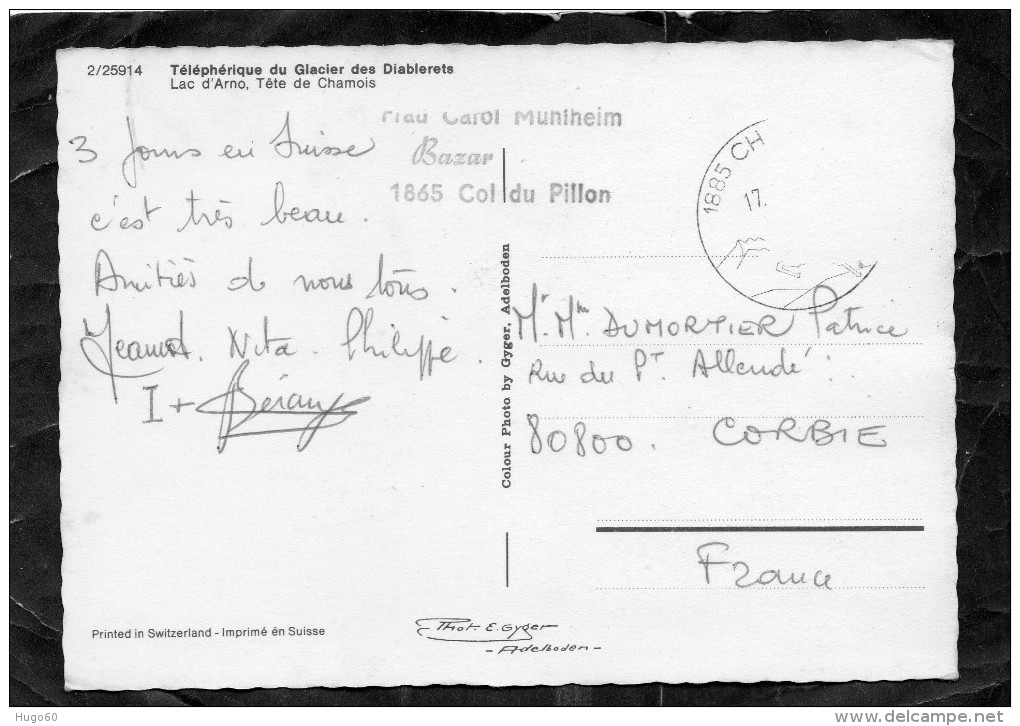 2/25914 Téléphérique du Glacier des Diablerets
Lac d'Arno, Tête de Chamois
Frau Carol Mühlheim
Bazar
1865 Col du Pillon
1885 CH
17.
3 Jours en Suisse
c'est très beau.
Amitiés de nous tous.
Jeannot. Nita. Philippe.
I +
Colour Photo by Gyger, Adelboden
Mr. Mm DUMORTIER Patrice
Rue du Pt Allendé
80800. CORBIE
France
Printed in Switzerland - Imprimé en Suisse
Phot. E. Gyger
- Adelboden -
Hugo60
www.delcampe.net